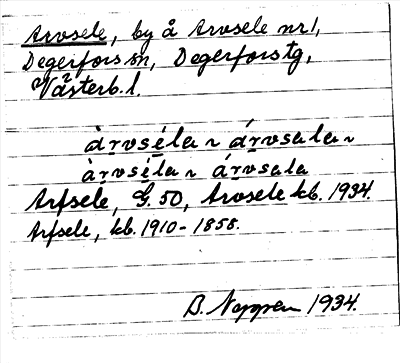 Arvsele, by å Arvsele nr 1,
Degerfors sn, Degerfors tg,
Västerb. l.
àrvséla ~ árvsala ~
àrvséla ~ árvsala
Arfsele, G. 50, Arvsele kb. 1934.
Arfsele, kb. 1910-1858.
B. 1934.